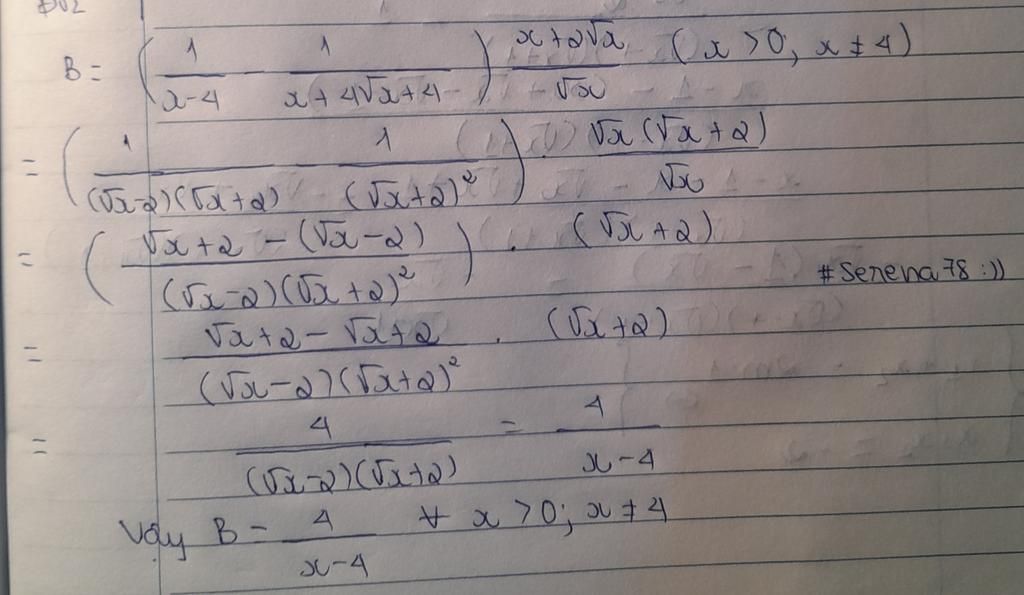 B = ( 1/(x-4) - 1/(x+4√x+4) ) (x+2√x)/√x (x>0; x≠4)
= ( 1/((√x-2)(√x+2)) - 1/(√x+2)² ) . √x(√x+2)/√x
= ( (√x+2-(√x-2))/((√x-2)(√x+2)²) ) . (√x+2)
#Serena78:))
= (√x+2-√x+2)/((√x-2)(√x+2)²) . (√x+2)
= 4/((√x-2)(√x+2)) = 4/(x-4)
Vậy B = 4/(x-4) ∀ x>0; x≠4